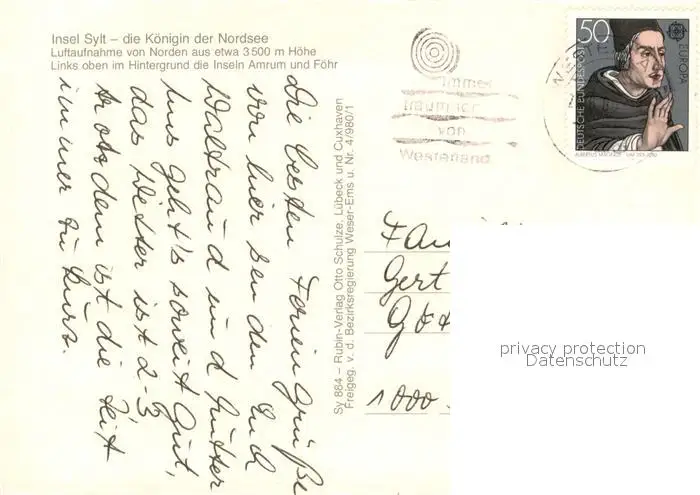 Insel Sylt – die Königin der Nordsee
Luftaufnahme von Norden aus etwa 3500 m Höhe
Links oben im Hintergrund die Inseln Amrum und Föhr
Die besten Feriengrüße
von hier senden Euch
Waltraud und Günter
Uns geht's soweit gut,
das Wetter ist 2-3
trotzdem ist die Zeit
immer zu kurz.
Sy 884 – Rubin-Verlag Otto Schulze, Lübeck und Cuxhaven
Freigeg. v. d. Bezirksregierung Weser-Ems u. Nr. 4/980/1
immer
träum ier
von
Westerland
50
DEUTSCHE BUNDESPOST
EUROPA
ALBERTUS MAGNUS
Fam
Gert
1000
privacy protection
Datenschutz